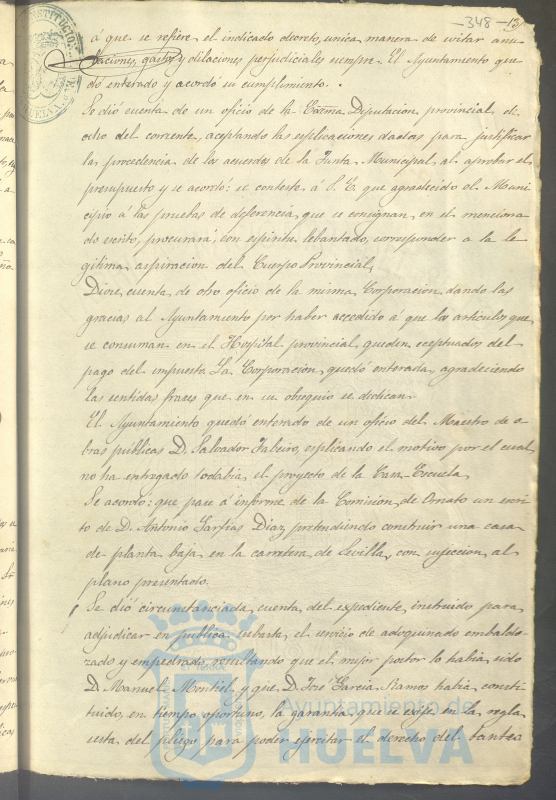 -348-
á que se refiere el indicado decreto, unica manera de evitar anu-
laciones, gastos y dilaciones perjudiciales siempre. El Ayuntamiento que-
dó enterado y acordó su cumplimiento.
Se dió cuenta de un oficio de la Excma Diputacion provincial de
ocho del corriente, aceptando las esplicaciones dadas para justificar
la procedencia de los acuerdos de la Junta Municipal, al aprobar el
presupuesto y se acordó: se conteste á S. E. que agradecido el Muni
cipio á las pruebas de diferencia, que se consignan, en el menciona
do escrito, procurará, con espiritu lebantado, corresponder a la le
gitima aspiracion del Cuerpo Provincial.
Diose cuenta de otro oficio de la misma Corporacion, dando las
gracias al Ayuntamiento por haber accedido á que los articulos que
se consuman en el Hospital provincial, queden eceptuados del
pago del impuesto. La Corporacion, quedó enterada, agradeciendo
las sentidas frases que en su obsequio se dedican.
El Ayuntamiento quedó enterado de un oficio del Maestro de o-
bras públicas D. Salvador Tabeiro, esplicando el motivo por el cual
no ha entregado todabia el proyecto de la Casa Escuela.
Se acordó: que pase á informe de la Comision de Ornato un escri
to de D. Antonio Diaz pretendiendo construir una casa
de planta baja en la carretera de Sevilla, con sujeccion al
plano presentado.
Se dió circunstanciada cuenta del espediente, instruido para
adjudicar en publica subasta el servicio de adoquinado embaldo
zado y empedrado, resultando que el mejor postor lo habia sido
D. Manuel Montiel y que D. José Garcia Ramos habia consti
tuido, en tiempo oportuno, la garantia que se exije en la regla
sesta del pliego para poder ejercitar el derecho del tanteo
Ayuntamiento de
HUELVA